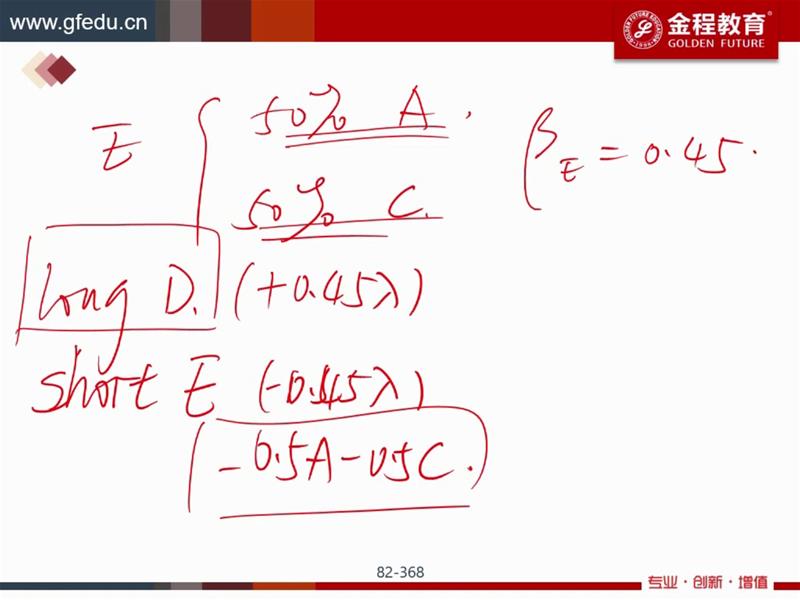 www.gfedu.cn
金程教育
GOLDEN FUTURE
E { 50% A.
50% C.
β_E = 0.45.
long D. (+0.45λ)
short E (-0.45λ)
-0.5A-0.5C.
82-368
专业·创新·增值